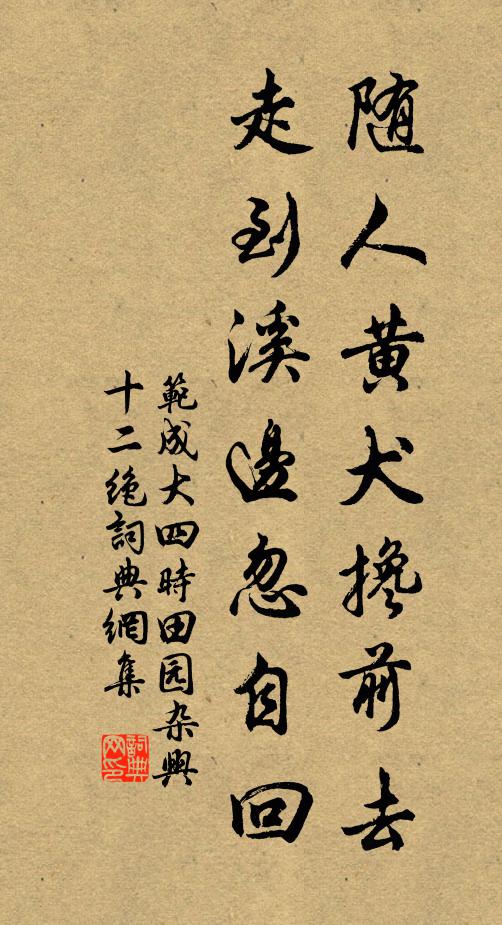 随人黄犬搀前去
走到溪邊忽自回
範成大四時田园杂興
十二绝詞典網集
詞典
网印